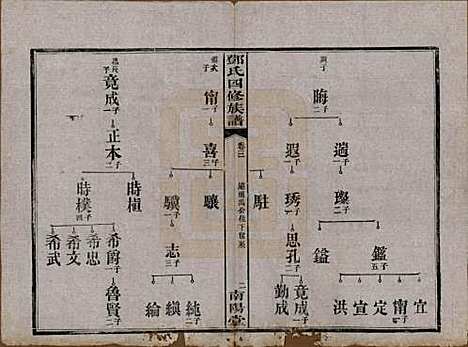 晦二子
遄一子
遐一子
璨二子
琇一子
鑑五子
鎰
思孔二子
宜
甯一子
定
宣
洪
竟成一子
勤成
鄭氏四修族譜
卷三
二
南陽堂
甯一子
喜三子
駐
驤
驥一子
志三子
純二子
縝
綸
竟成一子
正木二子
時楨
時樸四子
希爵一子
希忠
希文
希武
魯賢二子